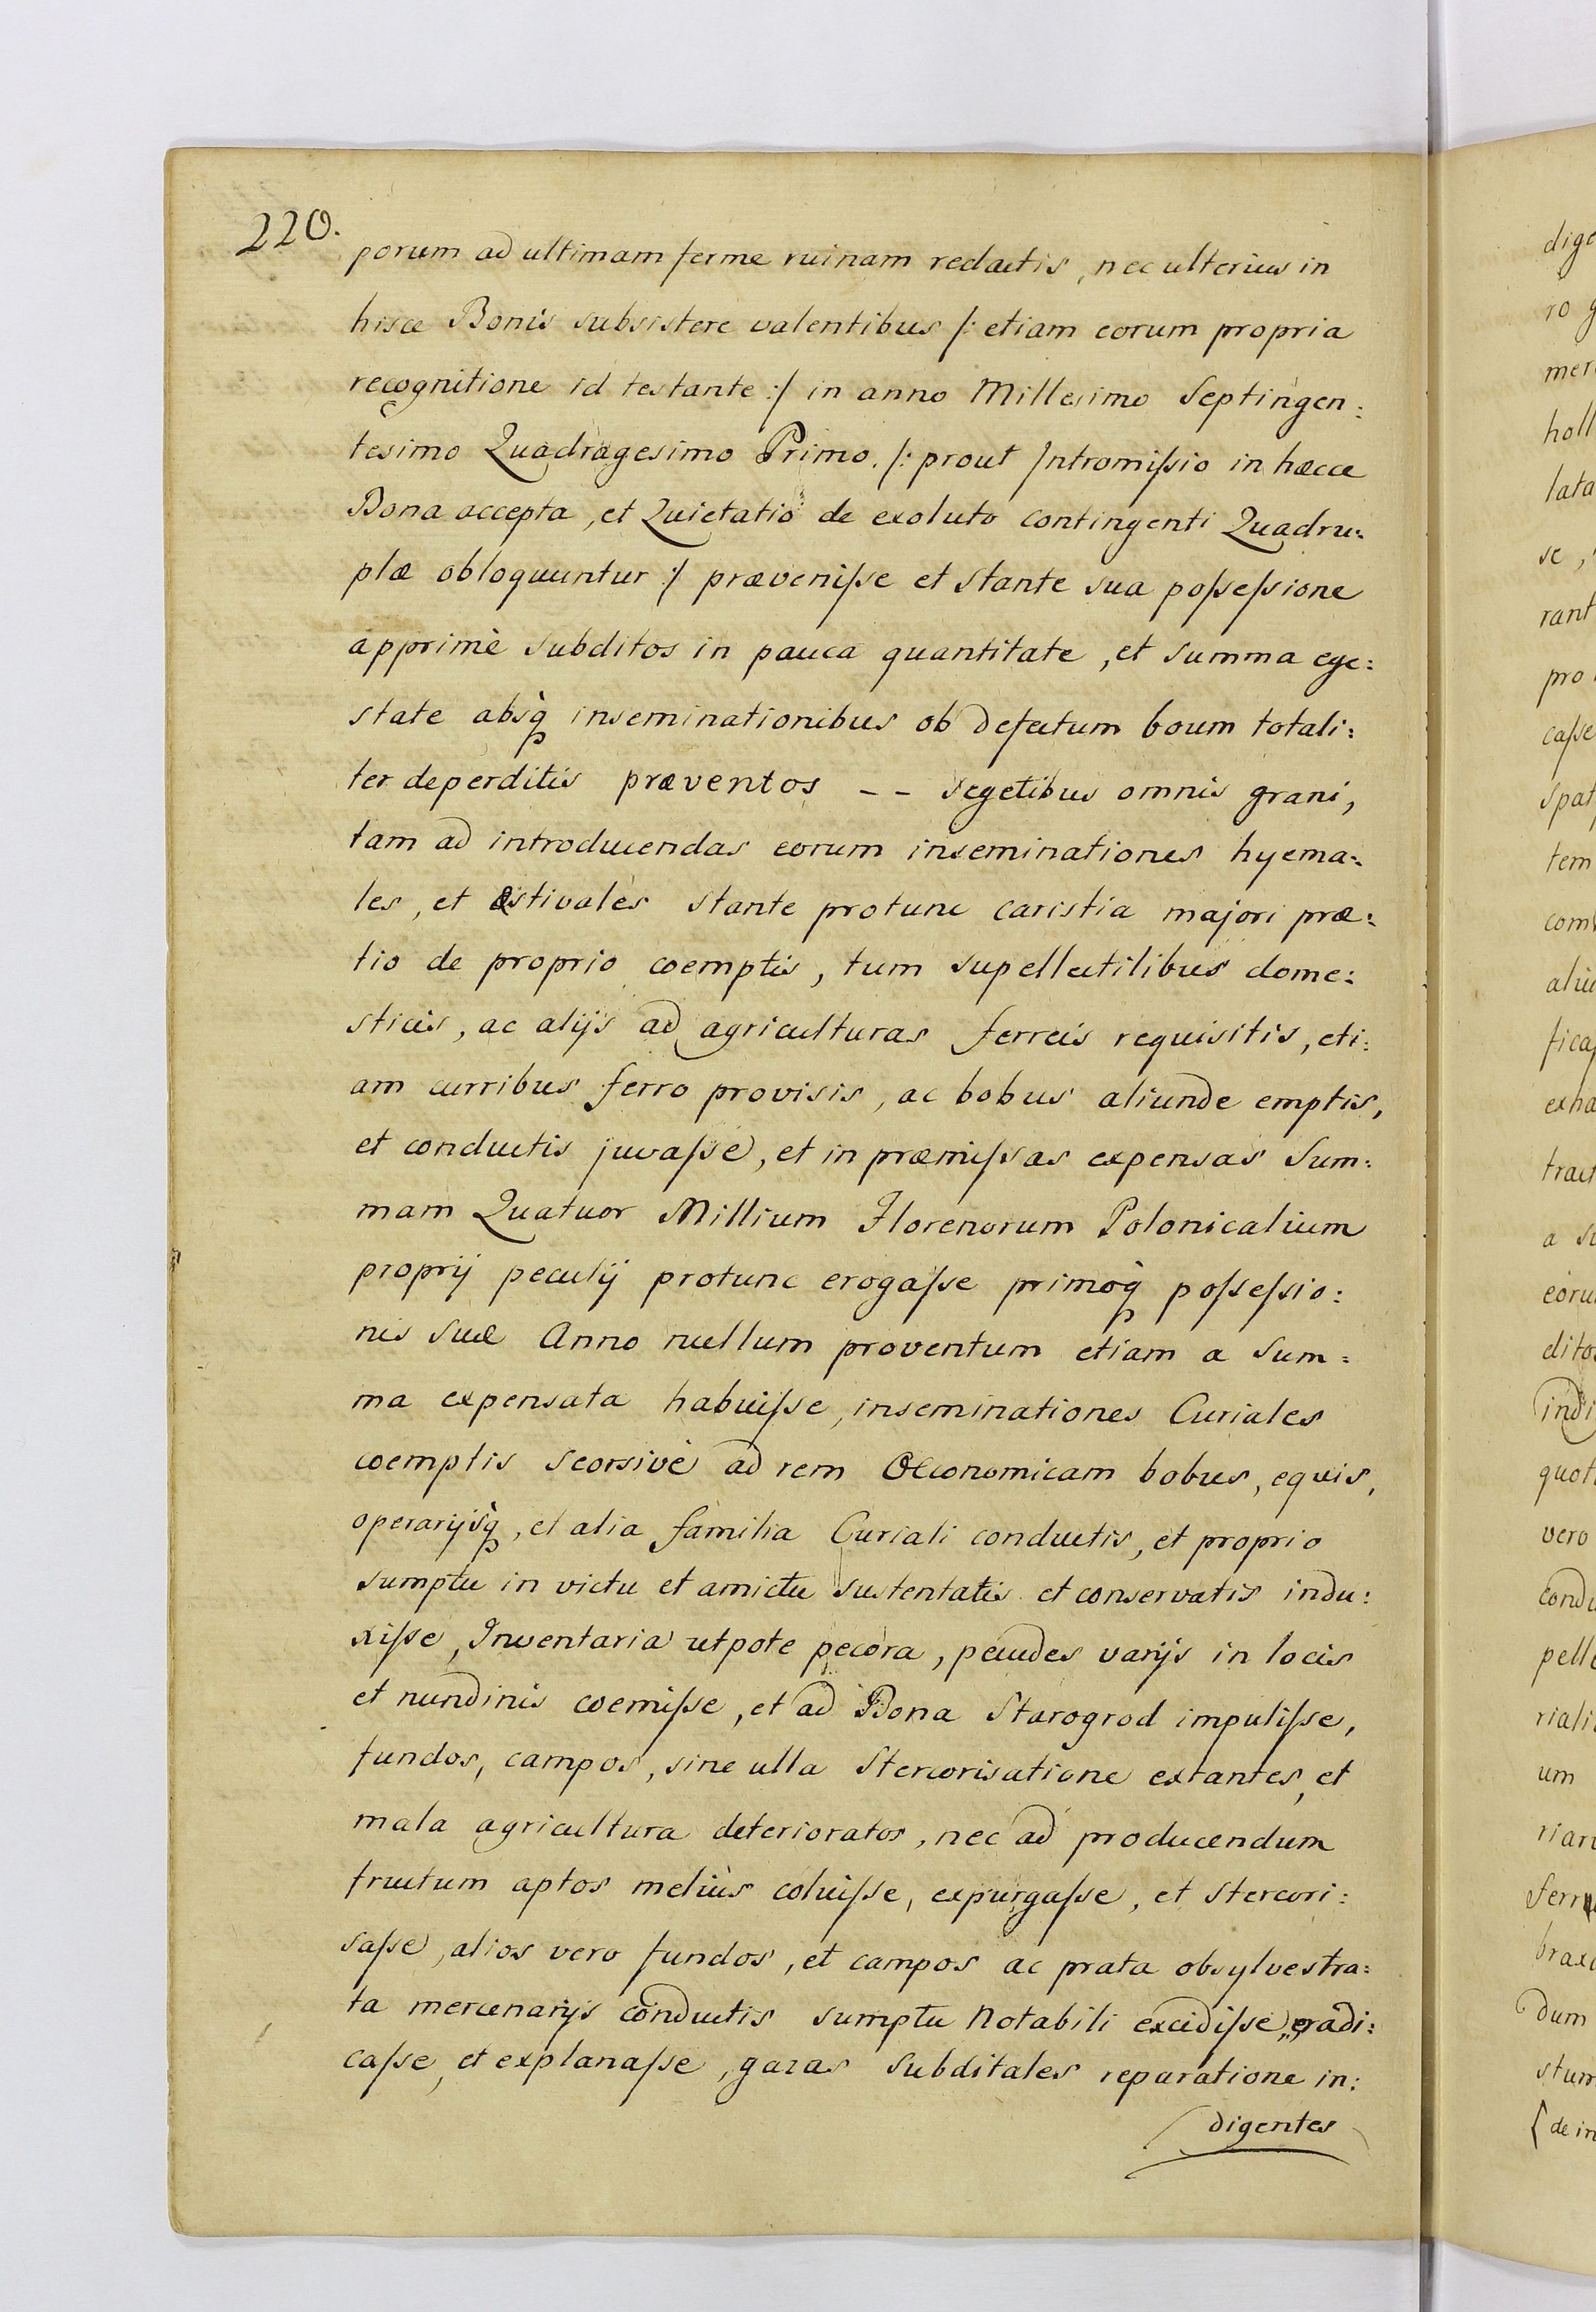 220.
porum ad ultimam ferme ruinam redactis, nec ulterius in
hisce Bonis subsistere valentibus /: etiam eorum propria
recognitione id testante :/ in anno Millesimo Septingen:
tesimo Quadragesimo Primo. /: prout Intromiſsio in hæcce
Bona accepta, et Quietatio de exoluto contingenti Quadru:
plæ obloquuntur :/ præveniſse et stante sua poſseſsione
apprimè subditos in pauca quantitate, et summa ege:
state absq̀ inseminationibus ob defectum boum totali:
ter deperditis præventos -- segetibus omnis grani,
tam ad introducendas eorum inseminationes hyema:
les, et Æstivales stante protunc caristia majori præ:
tio de proprio coemptis, tum supellectilibus dome:
sticis, ac alijs ad agriculturas ferreis requisitis, eti:
am curribus ferro provisis, ac bobus aliunde emptis,
et conductis juvaſse, et in præmiſsas expensas Sum:
mam Quatuor Millium Florenorum Polonicalium
proprij peculij protunc erogaſse primoq̀ poſseſsio:
nis suæ Anno nullum proventum etiam a sum:
ma expensata habuiſse, inseminationes Curiales
coemptis seorsivè ad rem Œconomicam bobus, equis,
operarijsq̀, et alia familia Curiali conductis, et proprio
sumptu in victu et amictu sustentatis et conservatis indu:
xiſse, Inventaria utpote pecora, pecudes varijs in locis
et nundinis coemiſse, et ad Bona Starogrod impuliſse,
fundos, campos, sine ulla stercorisatione extantes, et
mala agricultura deterioratos, nec ad producendum
fructum aptos meliùs coluiſse, expurgaſse, et stercori:
saſse, alios vero fundos, et campos ac prata obsylvestra:
ta mercenarijs conductis sumptu notabili excidiſse, eradi:
caſse, et explanaſse, gazas subditales reparatione in:
digentes
dige
ro g
mer
holl
lata
se,
rant
pro
caſse
spat
tem
com
aliu
fica
exha
tract
a su
eoru
dito
indi
quot
vero
condu
pell
riali
um
riar
ferr
brax
dum
stum
de in